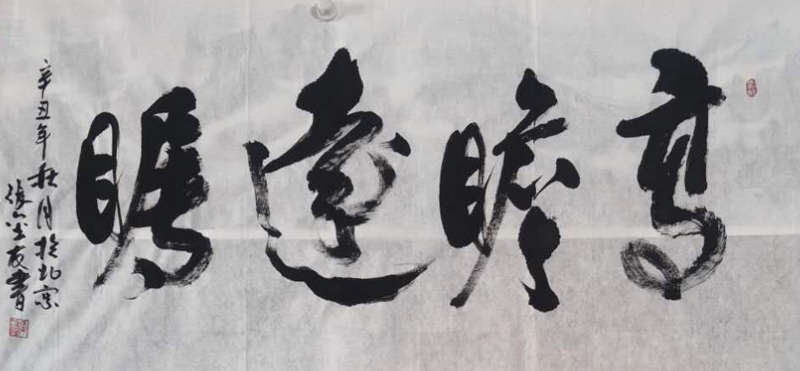 高瞻遠矚
辛丑年秋月於北京
張 友書